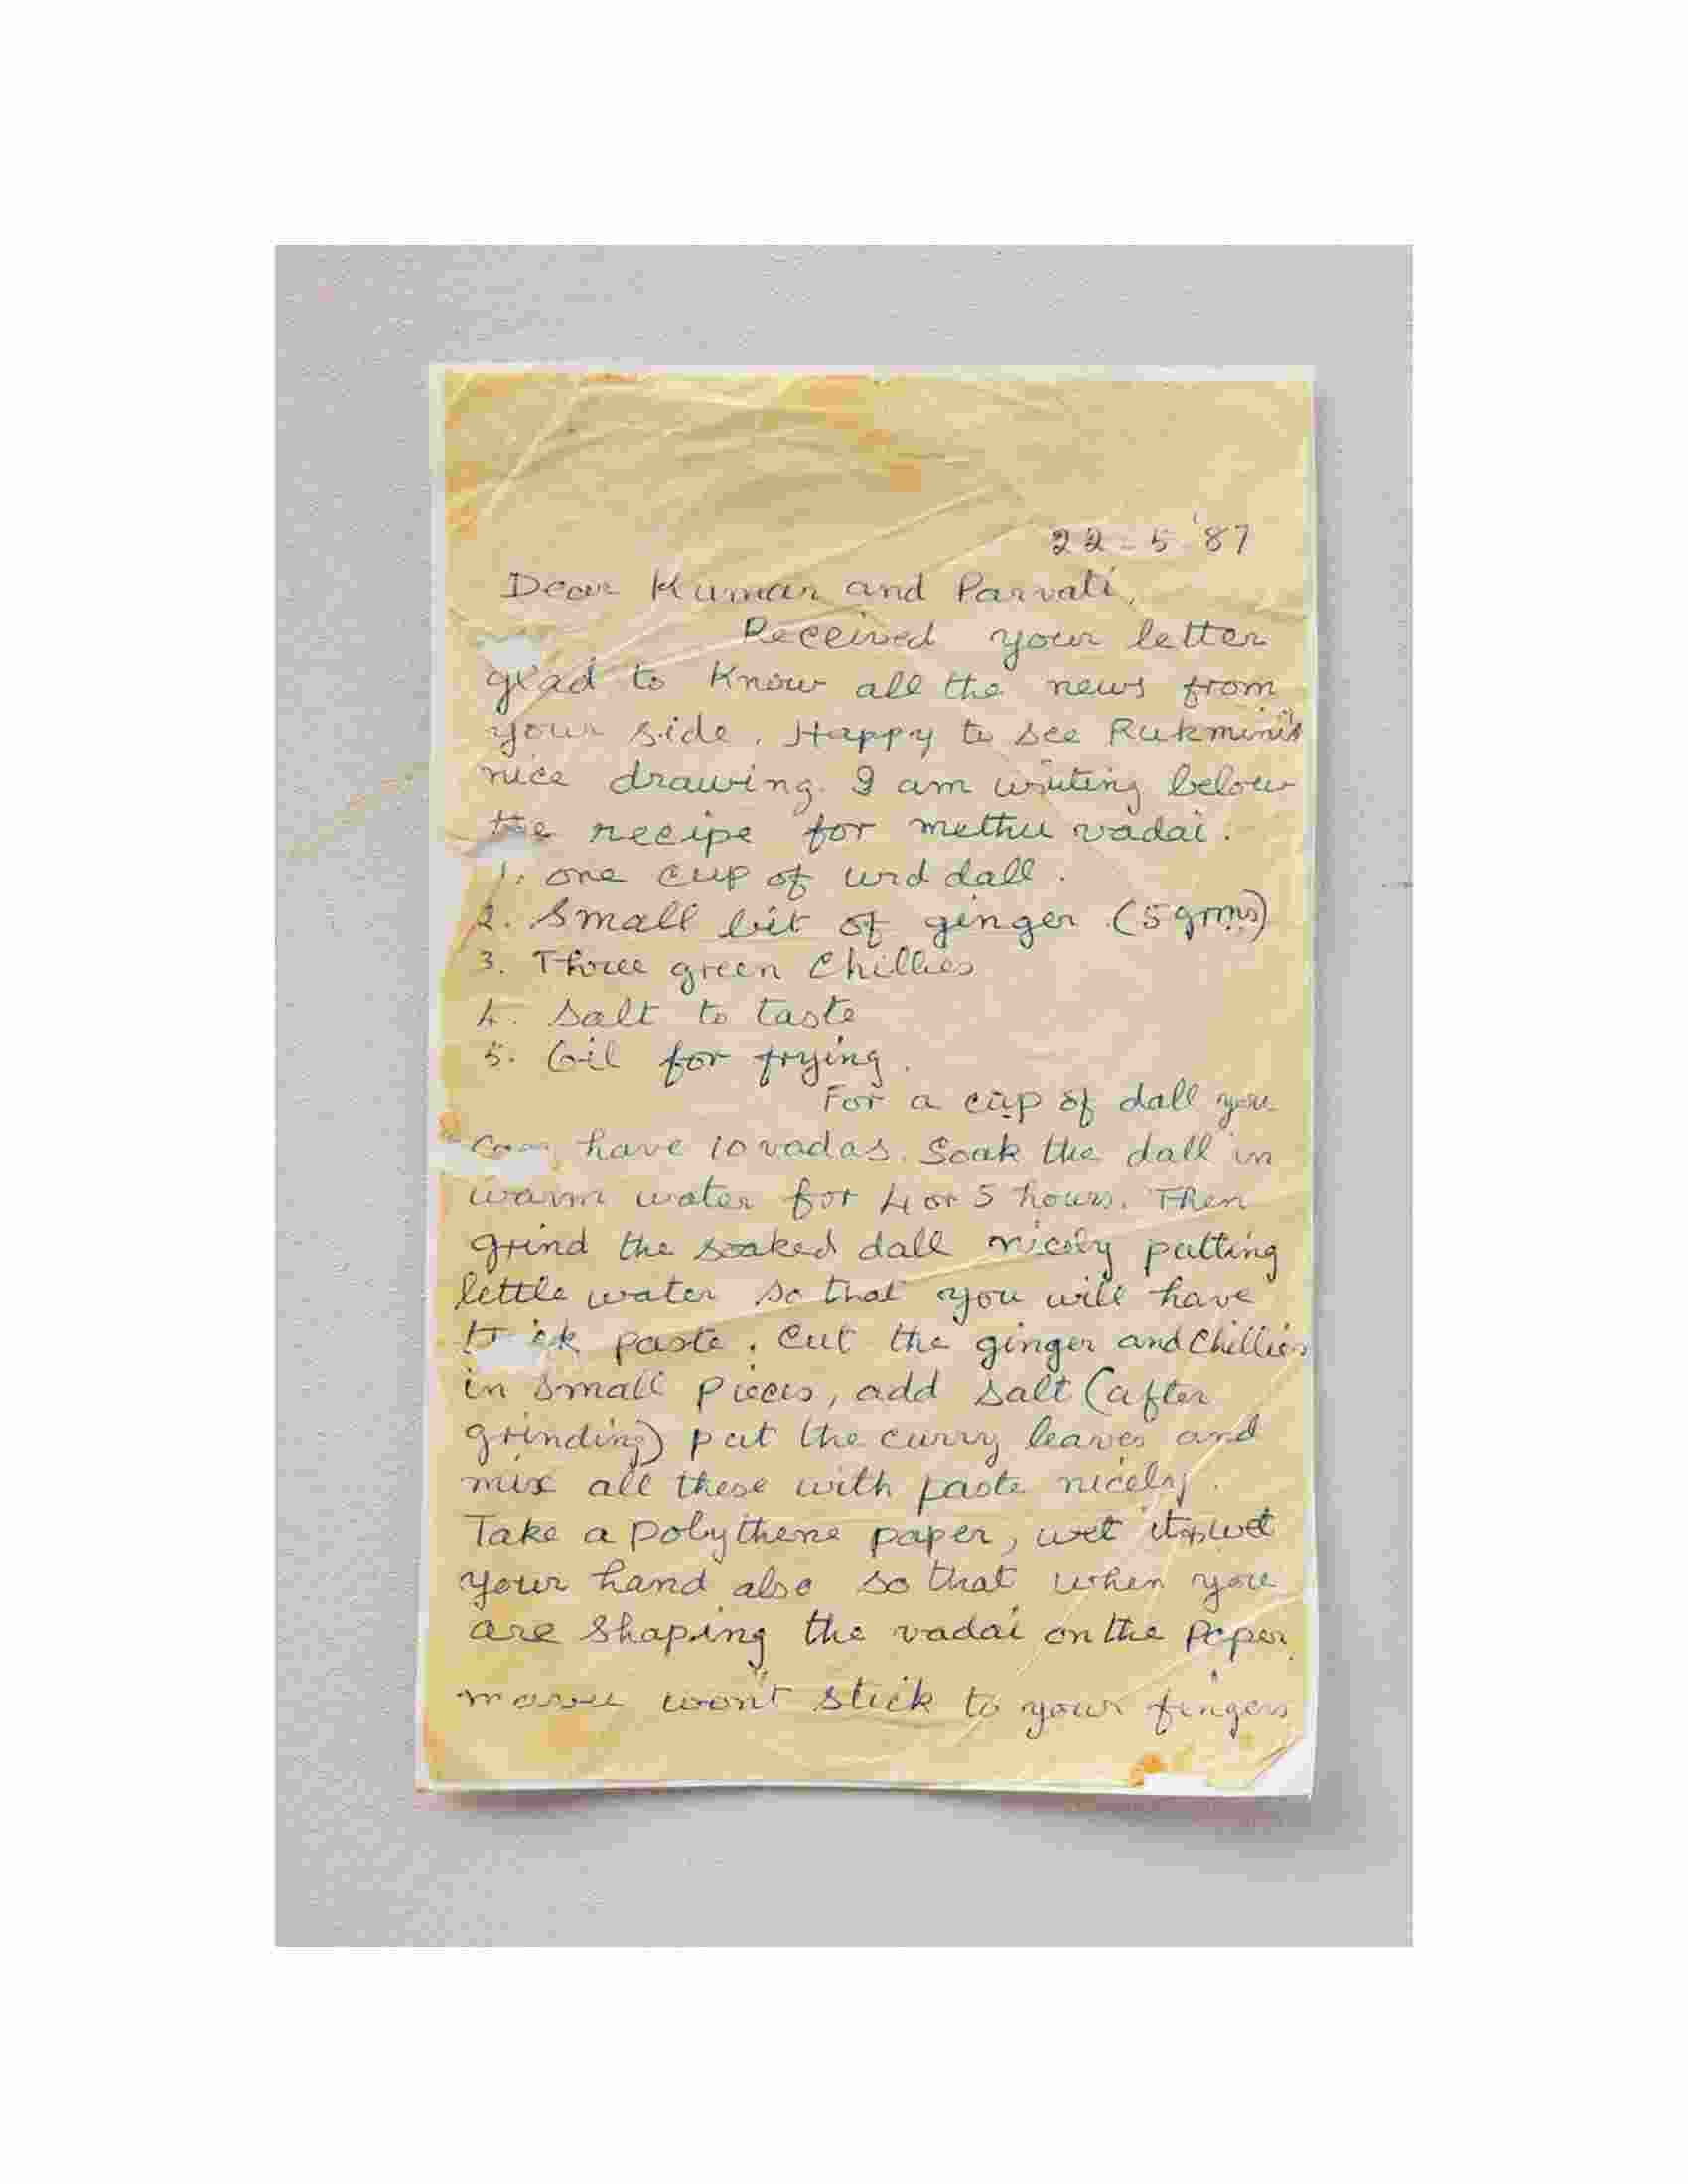 22-5-'87
Dear Kumar and Parvati,
Received your letter
glad to know all the news from
your side. Happy to see Rukmini's
nice drawing. I am writing below
the recipe for methu vadai.
1. one cup of urd dall.
2. Small bit of ginger (5 grms)
3. Three green chillies
4. Salt to taste
5. Oil for frying.
For a cup of dall you
can have 10 vadas. Soak the dall in
warm water for 4 or 5 hours. Then
grind the soaked dall nicely putting
little water so that you will have
paste. Cut the ginger and chillies
in small pieces, add salt (after
grinding) put the curry leaves and
mix all these with paste nicely.
Take a polythene paper, wet it wet
your hand also so that when you
are shaping the vadai on the paper
won't stick to your fingers